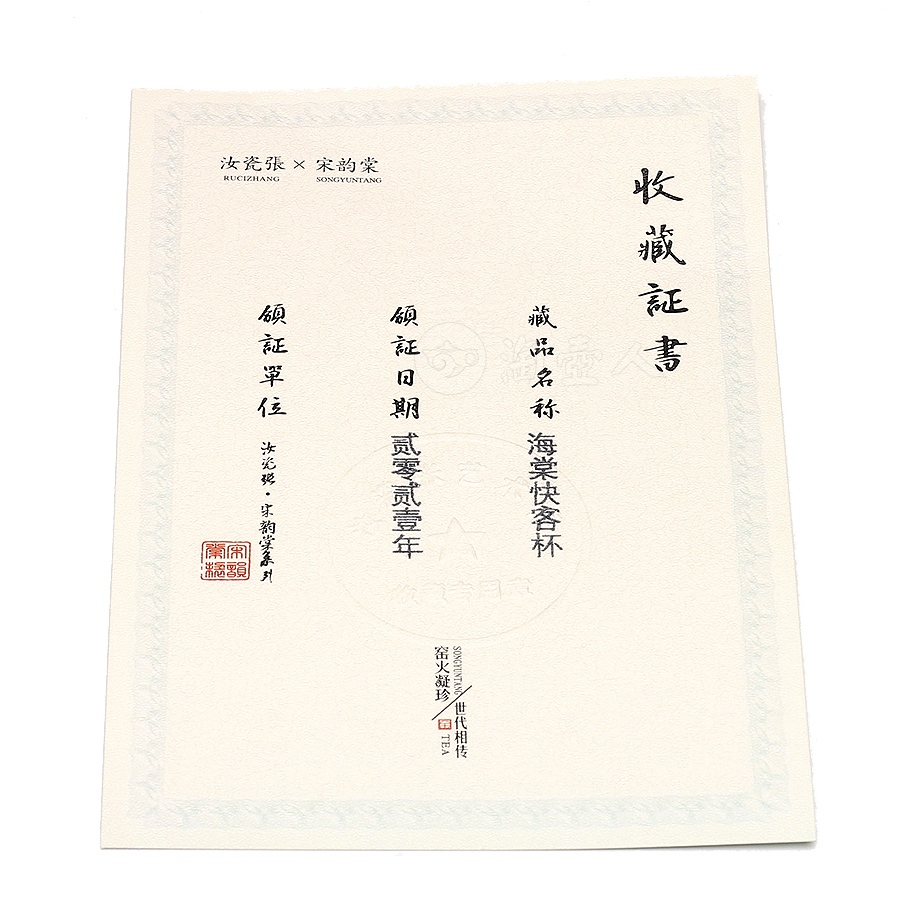 汝瓷張 × 宋韵棠
RUCIZHANG SONGYUNTANG
收藏証書
藏品名称 海棠快客杯
領証日期 贰零贰壹年
領証單位 汝瓷張·宋韵棠系列
SONGYUNTANG
窑火凝珍
世代相传
TEA